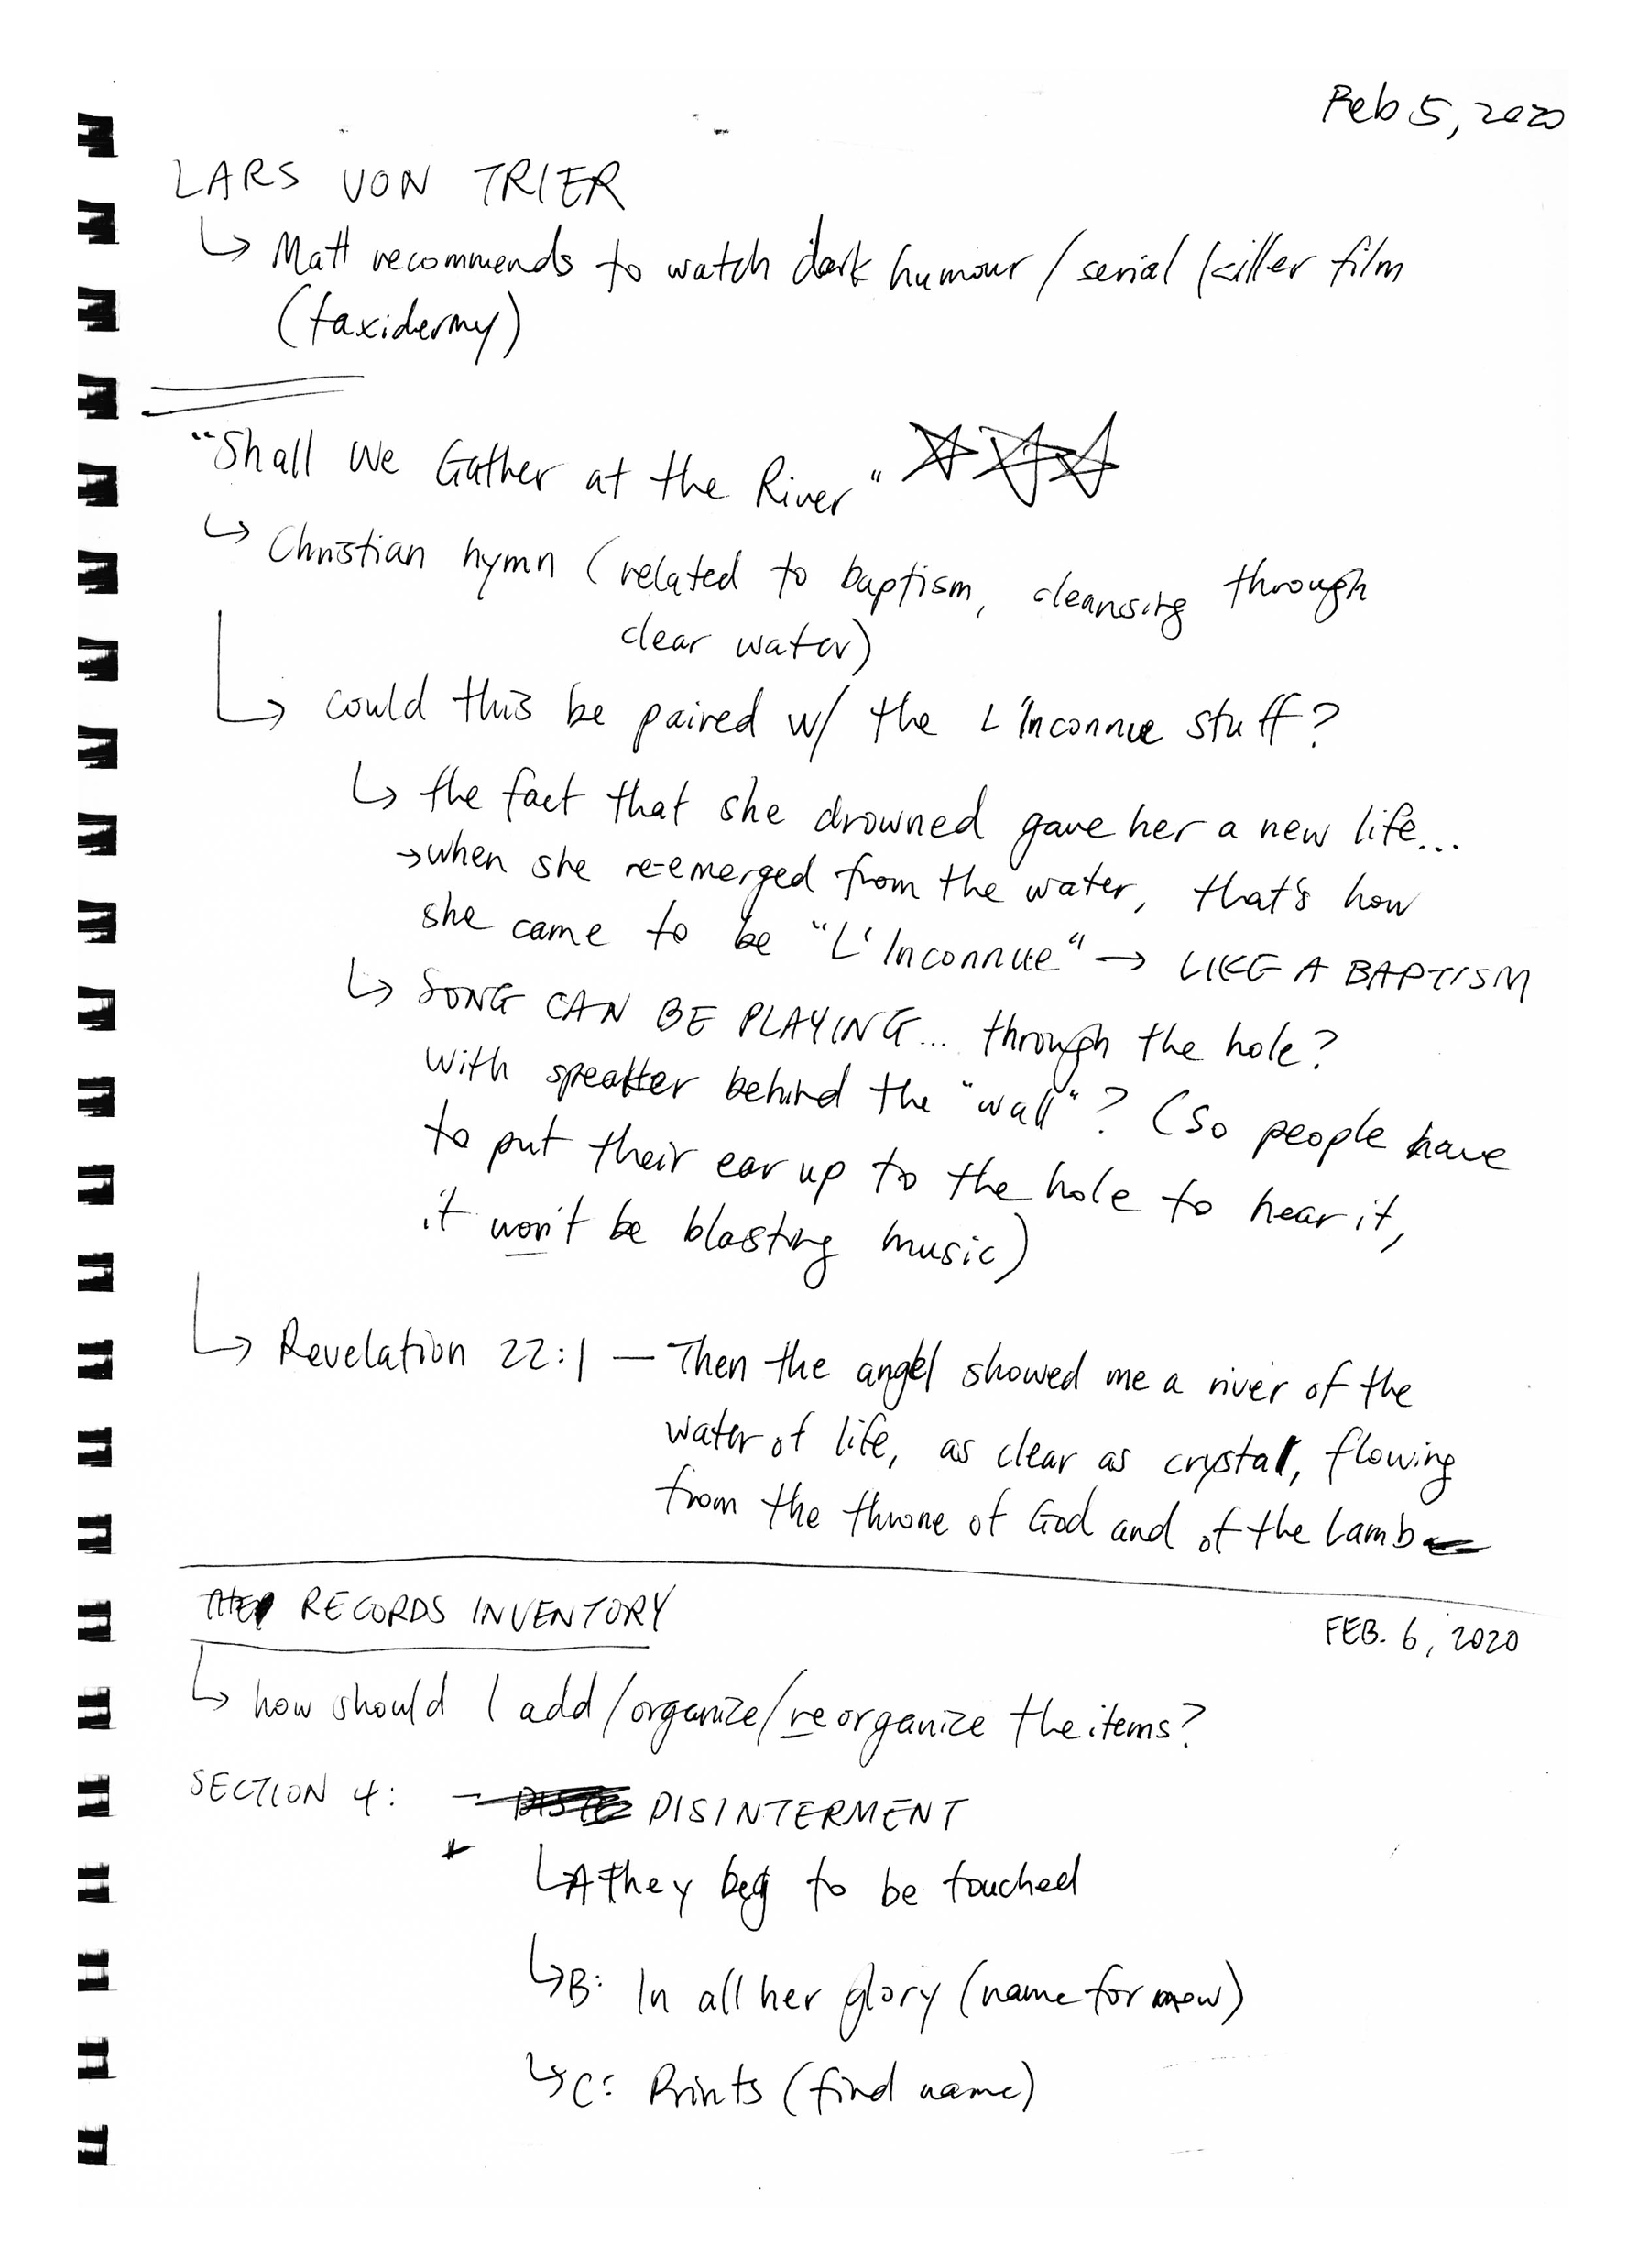 Feb 5, 2020
LARS VON TRIER
↳ Matt recommends to watch dark humour / serial killer film
(taxidermy)
"Shall We Gather at the River"
↳ Christian hymn (related to baptism, cleansing through
clear water)
↳ could this be paired w/ the L'Inconnue stuff?
↳ the fact that she drowned gave her a new life...
→ when she re-emerged from the water, that's how
she came to be "L'Inconnue" → LIKE A BAPTISM
↳ SONG CAN BE PLAYING... through the hole?
With speaker behind the "wall"? (So people have
to put their ear up to the hole to hear it,
it won't be blasting music)
↳ Revelation 22:1 — Then the angel showed me a river of the
water of life, as clear as crystal, flowing
from the throne of God and of the Lamb
THE RECORDS INVENTORY
FEB. 6, 2020
↳ how should I add/organize/reorganize the items?
SECTION 4: — DISINTERMENT
↳ A they beg to be touched
↳ B: In all her glory (name for now)
↳ C: Prints (find name)